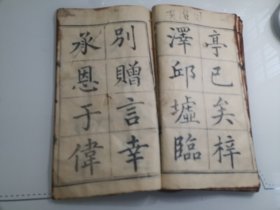 亭已矣梓
澤邱墟臨
別贈言幸
承恩于偉